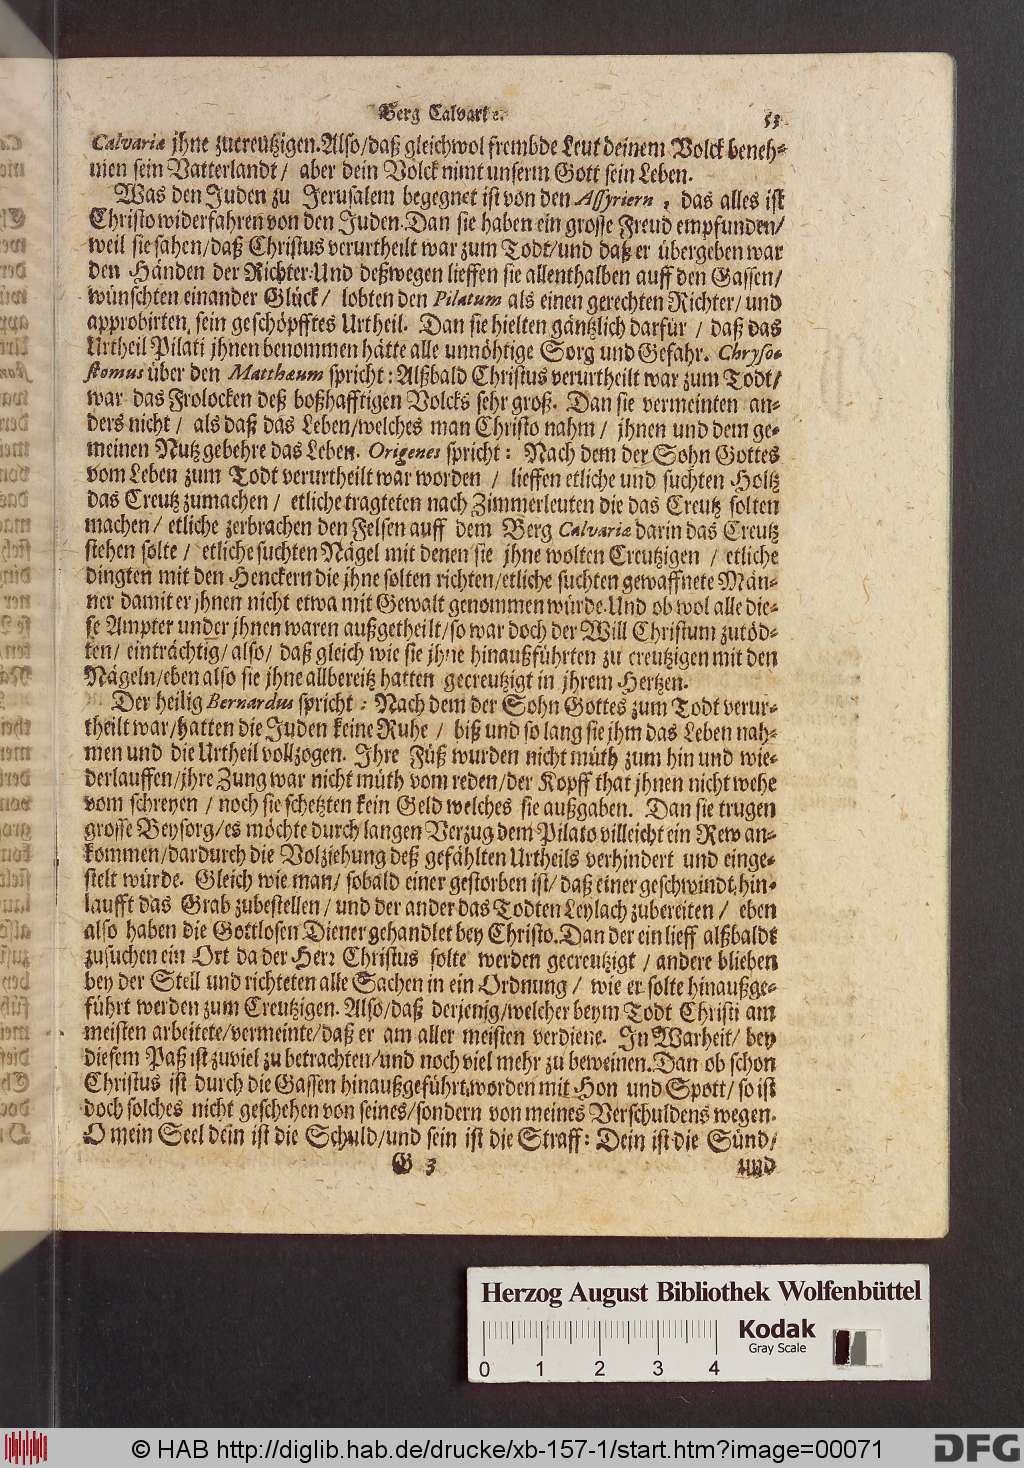 Berg Calvariæ. 53
Calvariæ jhne zucreutzigen. Also/daß gleichwol frembde Leut deinem Volck beneh-
men sein Vatterlandt/ aber dein Volck nimt unserm Gott sein Leben.
Was den Juden zu Jerusalem begegnet ist von den Assyriern, das alles ist
Christo widerfahren von den Juden. Dan sie haben ein grosse Freud empfunden/
weil sie sahen/daß Christus verurtheilt war zum Todt/und daß er übergeben war
den Händen der Richter. Und deßwegen lieffen sie allenthalben auff den Gassen/
wünschten einander Glück/ lobten den Pilatum als einen gerechten Richter/ und
approbirten, sein geschöpfftes Urtheil. Dan sie hielten gäntzlich darfür / daß das
Urtheil Pilati jhnen benommen hätte alle unnöhtige Sorg und Gefahr. Chryso-
stomus über den Matthæum spricht: Alßbald Christus verurtheilt war zum Todt/
war das Frolocken deß boßhafftigen Volcks sehr groß. Dan sie vermeinten an-
ders nicht / als daß das Leben/welches man Christo nahm/ jhnen und dem ge-
meinen Nutz gebehre das Leben. Origenes spricht: Nach dem der Sohn Gottes
vom Leben zum Todt verurtheilt war worden / lieffen etliche und suchten Holtz
das Creutz zumachen / etliche tragteten nach Zimmerleuten die das Creutz solten
machen/ etliche zerbrachen den Felsen auff dem Berg Calvariæ darin das Creutz
stehen solte / etliche suchten Nägel mit denen sie jhne wolten Creutzigen / etliche
dingten mit den Henckern die jhne solten richten/etliche suchten gewaffnete Män-
ner damit er jhnen nicht etwa mit Gewalt genommen würde. Und ob wol alle die-
se Ampter under jhnen waren außgetheilt/so war doch der Will Christum zutöd-
ten/ einträchtig/ also/ daß gleich wie sie jhne hinaußführten zu creutzigen mit den
Nägeln/eben also sie jhne allbereitz hatten gecreutzigt in jhrem Hertzen.
Der heilig Bernardus spricht: Nach dem der Sohn Gottes zum Todt verur-
theilt war/hatten die Juden keine Ruhe / biß und so lang sie jhm das Leben nah-
men und die Urtheil vollzogen. Ihre Füß wurden nicht müth zum hin und wie-
derlauffen/jhre Zung war nicht müth vom reden/der Kopff that jhnen nicht wehe
vom schreyen / noch sie schetzten kein Geld welches sie außgaben. Dan sie trugen
grosse Beysorg/es möchte durch langen Verzug dem Pilato villeicht ein Rew an-
kommen/dardurch die Volziehung deß gefählten Urtheils verhindert und einge-
stelt würde. Gleich wie man/ sobald einer gestorben ist/ daß einer geschwindt hin-
laufft das Grab zubestellen/ und der ander das Todten Leylach zubereiten / eben
also haben die Gottlosen Diener gehandlet bey Christo. Dan der ein lieff alßbaldt
zusuchen ein Ort da der Herr Christus solte werden gecreutzigt / andere blieben
bey der Stell und richteten alle Sachen in ein Ordnung / wie er solte hinaußge-
führt werden zum Creutzigen. Also/daß derjenig/welcher beym Todt Christi am
meisten arbeitete/vermeinte/daß er am aller meisten verdiene. In Warheit/ bey
diesem Paß ist zuviel zu betrachten/und noch viel mehr zu beweinen. Dan ob schon
Christus ist durch die Gassen hinaußgeführt worden mit Hon und Spott/ so ist
doch solches nicht geschehen von seines/sondern von meines Verschuldens wegen.
O mein Seel dein ist die Schuld/und sein ist die Straff: Dein ist die Sünd/
G 3 und
Herzog August Bibliothek Wolfenbüttel
0 1 2 3 4
Kodak
Gray Scale
© HAB http://diglib.hab.de/drucke/xb-157-1/start.htm?image=00071
DFG